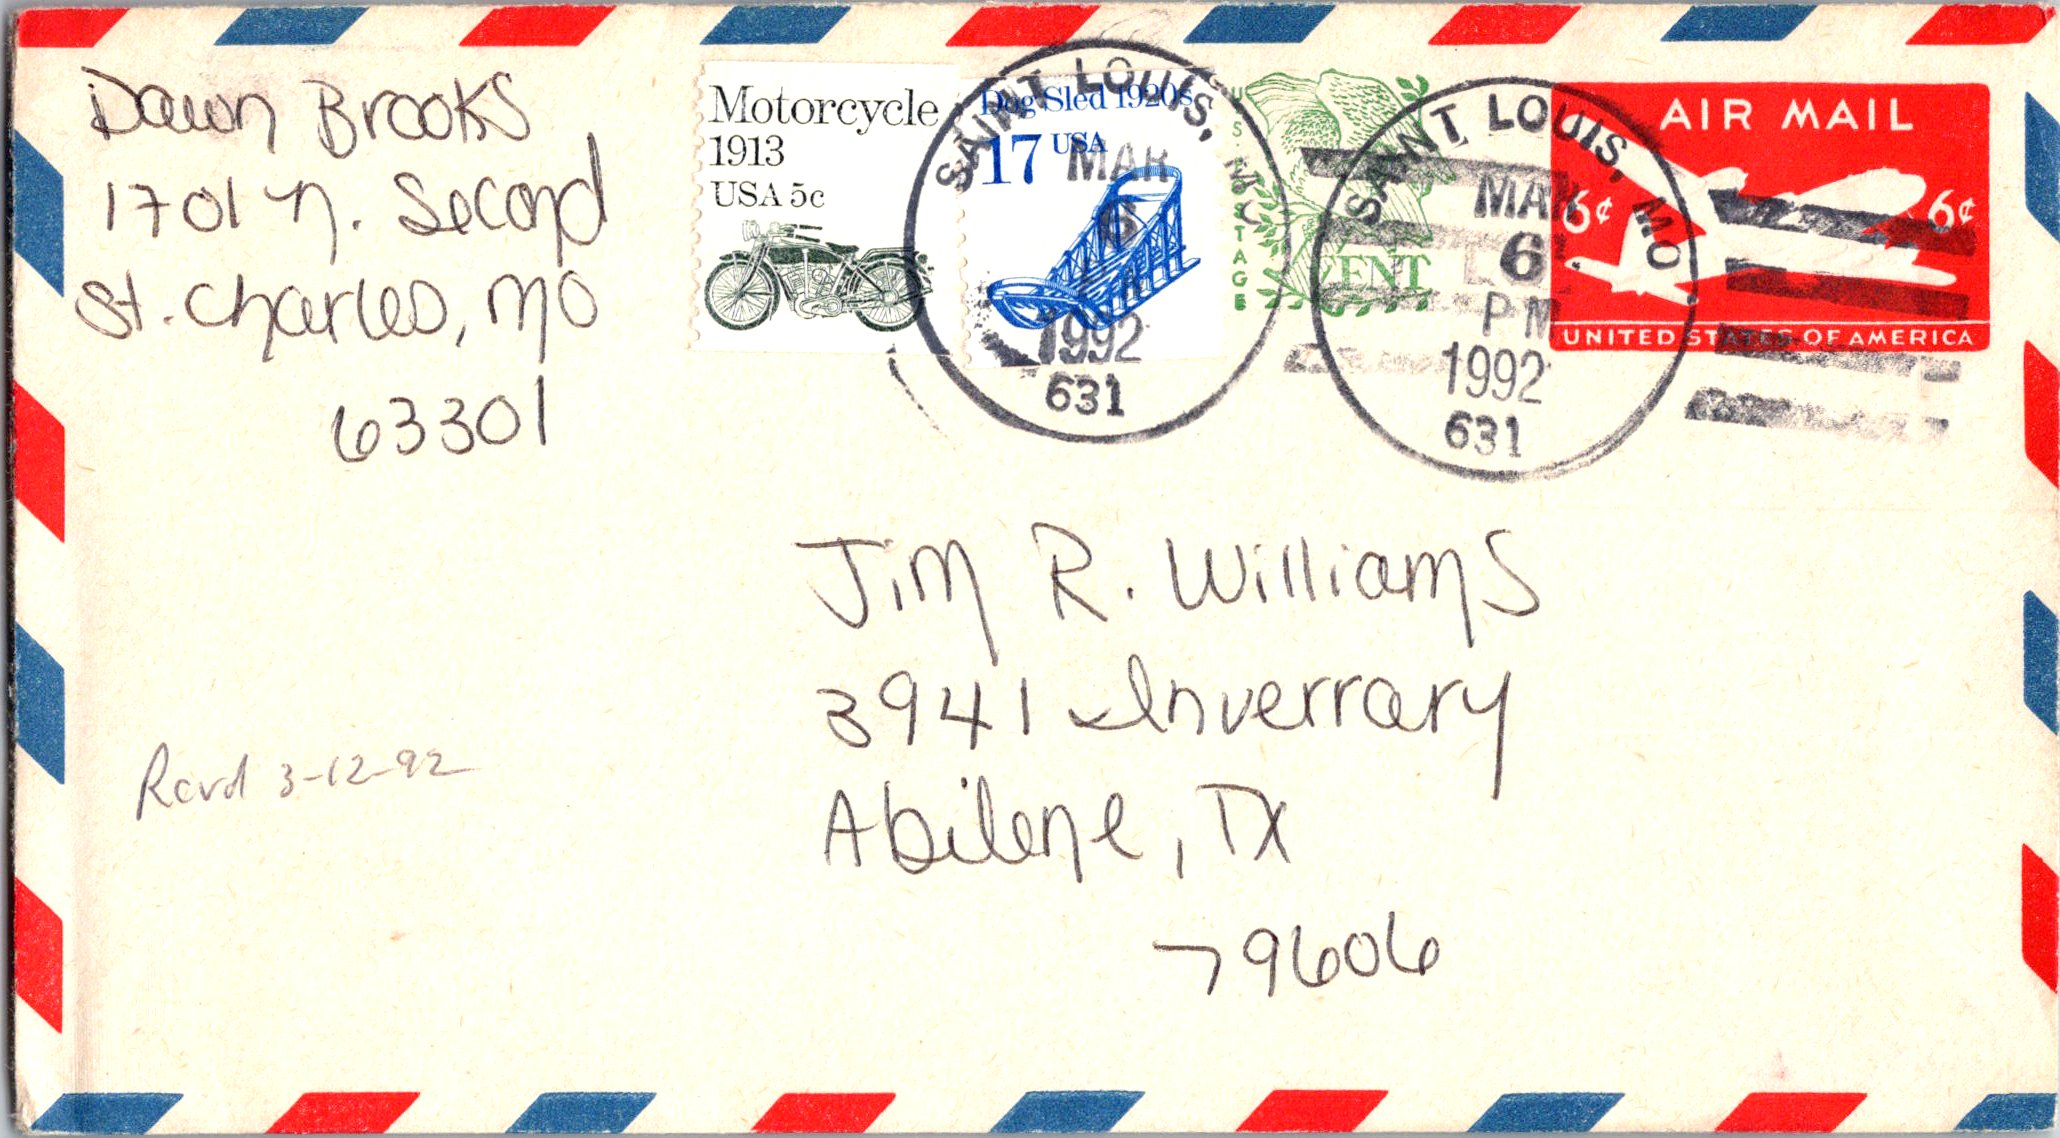 Dawn Brooks
1701 N. Second
St. Charles, MO
63301
Motorcycle
1913
USA 5c
Dog Sled 1920s
17 USA
U.S. POSTAGE
CENT
AIR MAIL
6¢ 6¢
UNITED STATES OF AMERICA
SAINT LOUIS, MO
MAR
6
1992
631
SAINT LOUIS, MO
MAR
6
PM
1992
631
Jim R. Williams
3941 Inverrary
Abilene, TX
79606
Rcvd 3-12-92